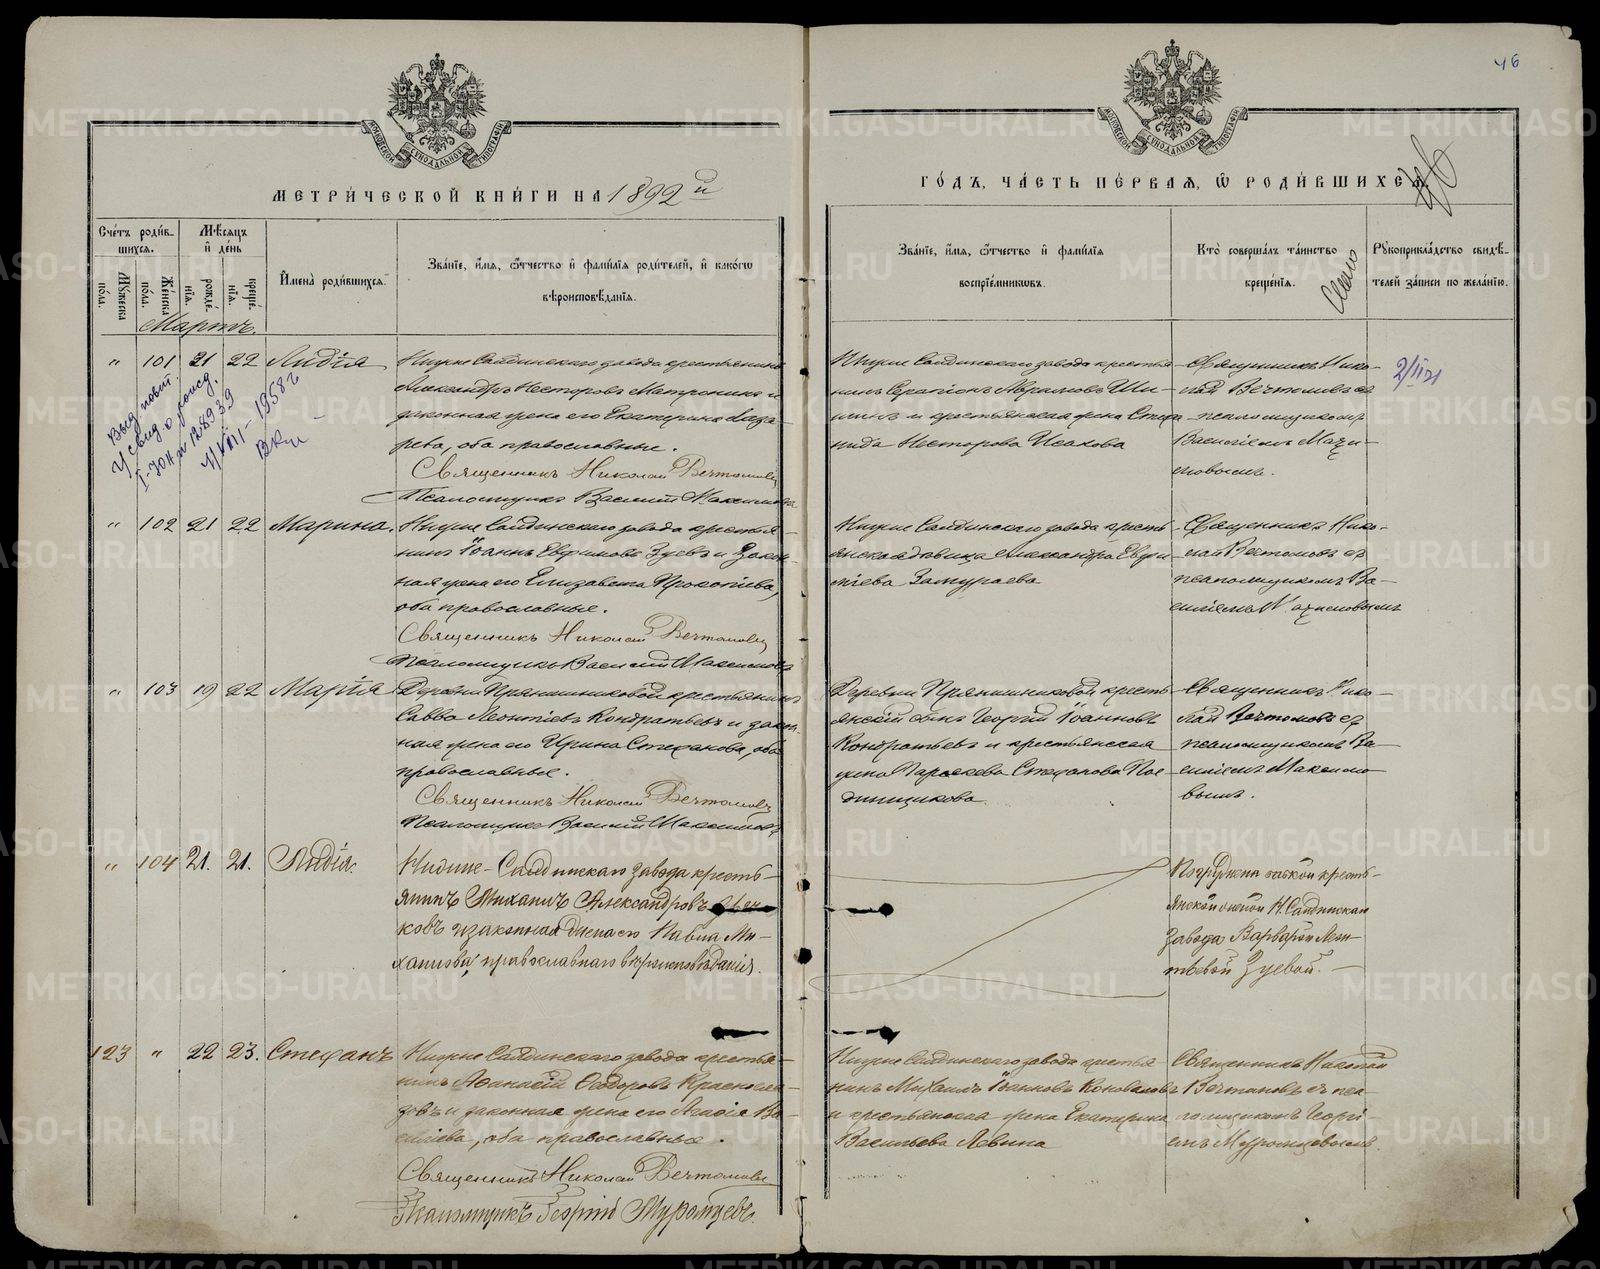 46
МОСКОВСКОЙ СѴНОДАЛЬНОЙ ТИПОГРАФІИ
МОСКОВСКОЙ СѴНОДАЛЬНОЙ ТИПОГРАФІИ
МЕТРИ́ЧЕСКОЙ КНИ́ГИ НА 1892 й
ГО́ДЪ, ЧА́СТЬ ПЕ́РВАЯ, Ѡ РОДИ́ВШИХСЯ.
Сче́тъ роди́в-
шихся.
Мꙋжеска по́ла.
Же́нска по́ла.
Мѣ́сяцъ
и̂ де́нь
рожде́нїя.
креще́нїя.
И̂мена̀ роди́вшихся.
Зва́нїе, и́мя, ѻ́тчество и̂ фами́лїя роди́телей, и̂ како́гѡ
вѣроисповѣ́данїя.
Зва́нїе, и́мя, ѻ́тчество и̂ фами́лїя
воспрїе́мникѡвъ.
Кто̀ соверша́лъ та́инство
креще́нїя.
Рꙋкоприкла́дство свидѣ́-
телей за́писи по жела́нїю.
Мартъ.
" 101 21 22 Лидія
Нижне Салдинскаго завода крестьянинъ
Александръ Несторовъ Матронинъ и
законная жена его Екатерина Лаза-
рева, оба православные.
Священникъ Николай Вечтомовъ
Псаломщикъ Василій Максимовъ
Нижне Салдинскаго завода крестья-
нинъ Серапіонъ Абрамовъ
и крестьянская жена Степа-
нида Несторова Исакова
Священникъ Нико-
лай Вечтомовъ съ
псаломщикомъ
Василіемъ Макси-
мовымъ.
2/II 21
Выд. повт.
I-ЮН № 128939
1958 г
" 102 21 22 Марина.
Нижне Салдинскаго завода крестья-
нинъ Іоаннъ Евфимовъ Зуевъ и закон-
ная жена его Елизавета Прокопіева,
оба православные.
Священникъ Николай Вечтомовъ
Псаломщикъ Василій Максимовъ
Нижне Салдинскаго завода кресть-
янская вдовица Александра Евфи-
міева Замураева
Священникъ Нико-
лай Вечтомовъ съ
псаломщикомъ Ва-
силіемъ Максимовымъ
" 103 19 22 Марія
Деревни Прянишниковой крестьянинъ
Савва Леонтіевъ Кондратьевъ и закон-
ная жена его Ирина Стефанова, оба
православные.
Священникъ Николай Вечтомовъ
Псаломщикъ Василій Максимовъ
Деревни Прянишниковой кресть-
янскій сынъ Георгій Іоанновъ
Кондратьевъ и крестьянская
жена Параскева Стефанова Пое-
динщикова.
Священникъ Нико-
лай Вечтомовъ съ
псаломщикомъ Ва-
силіемъ Максимо-
вымъ.
" 104 21. 21. Лидія.
Нижне-Салдинскаго завода кресть-
янинъ Михаилъ Александровъ
ковъ и законная жена его Павла Ми-
хаилова, православнаго вѣроисповѣданія.
Погружена бабкой кресть-
янской женой Н. Салдинскаго
завода Варварой Леон-
тьевой Зуевой. —
123 " 22 23. Стефанъ
Нижне Салдинскаго завода крестья-
нинъ Аѳанасій Ѳеодоровъ Красногла-
зовъ и законная жена его Агаѳія Ва-
силіева, оба православные.
Священникъ Николай Вечтомовъ
Псаломщикъ Георгій Муромцевъ.
Нижне Салдинскаго завода крестья-
нинъ Михаилъ Іоанновъ Коноваловъ
и крестьянская жена Екатерина
Васильева Левина
Священникъ Николай
Вечтомовъ съ пса-
ломщикомъ Георгі-
емъ Муромцевымъ.
METRIKI.GASO-URAL.RU